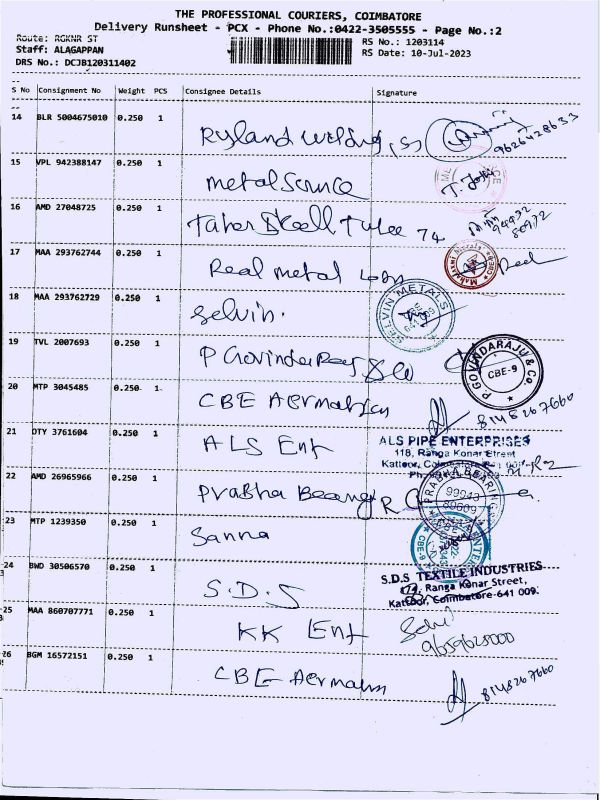 THE PROFESSIONAL COURIERS, COIMBATORE
Delivery Runsheet - PCX - Phone No.:0422-3505555 - Page No.:2
Route: RGKNR ST
RS No.: 1203114
Staff: ALAGAPPAN
RS Date: 10-Jul-2023
DRS No.: DCJB120311402
S No Consignment No Weight PCS Consignee Details Signature
14 BLR 5004675010 0.250 1
Ryland Welding
9626428633
15 VPL 942388147 0.250 1
metal Service
16 AMD 27048725 0.250 1
Taher Steel Tube 74
94432
80972
17 MAA 293762744 0.250 1
Real metal
18 MAA 293762729 0.250 1
Selvin.
SELVIN METALS
19 TVL 2007693 0.250 1
P Govinda Raj & Co
P GOVINDARAJU & Co
CBE-9
20 MTP 3045485 0.250 1
CBE Aermatics
8148267660
21 OTY 3761604 0.250 1
ALS Ent
ALS PIPE ENTERPRISES
118, Ranga Konar Street
Kattoor,
22 AMD 26965966 0.250 1
Prabha Bearing
PRABHA BEARING
99043
80609
23 MTP 1239350 0.250 1
Sanna
CBE-9
24 BWD 30506570 0.250 1
S.D.S
S.D.S TEXTILE INDUSTRIES
Ranga Konar Street,
Kattoor, Coimbatore-641 009.
25 MAA 860707771 0.250 1
KK Ent
9659625000
26 BGM 16572151 0.250 1
CBE Aermatics
8148267660